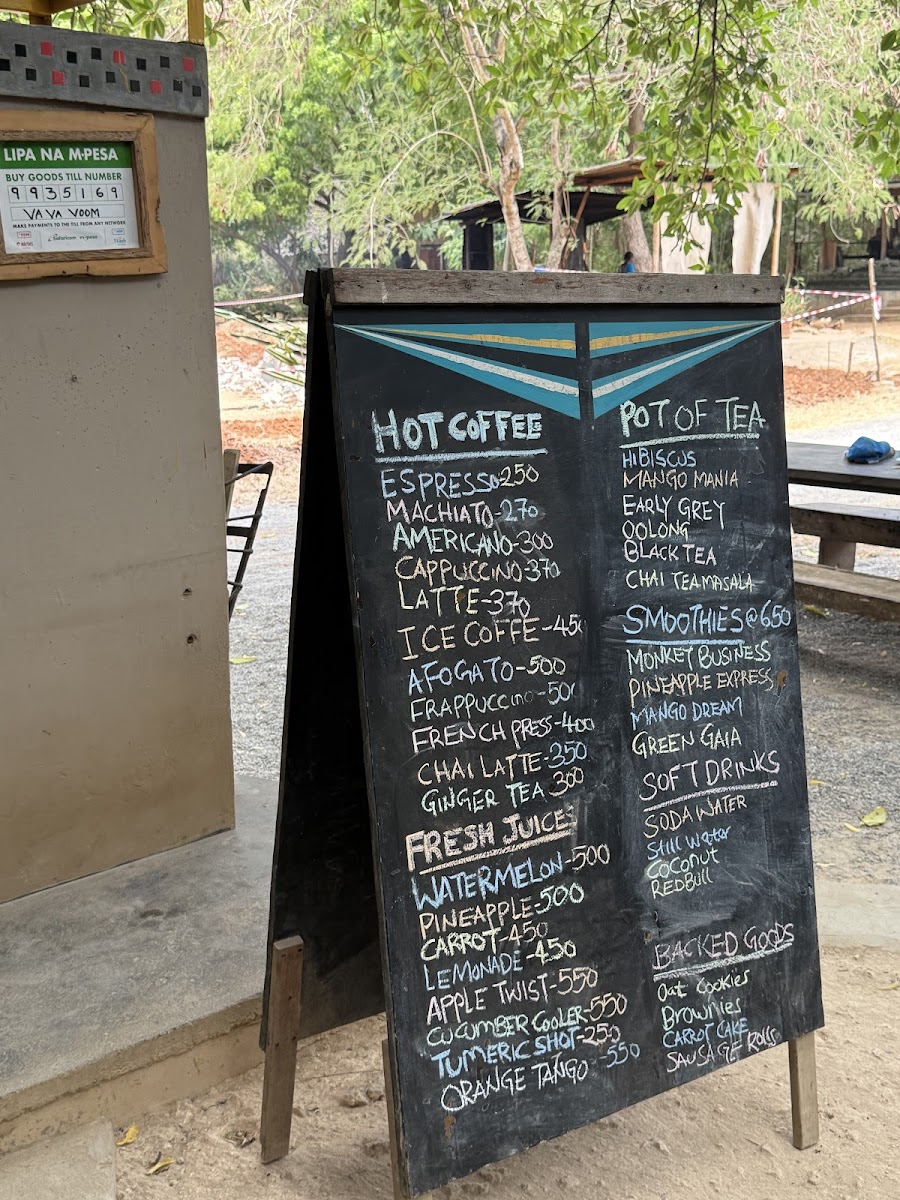 LIPA NA M-PESA
BUY GOODS TILL NUMBER
9935169
VAVA VOOM
MAKE PAYMENTS TO THE TILL FROM ANY NETWORK
Safaricom
HOT COFFEE
ESPRESSO-250
MACHIATO-270
AMERICANO-300
CAPPUCCINO-370
LATTE-370
ICE COFFE-450
AFOGATO-500
FRAPPUCCINO-500
FRENCH PRESS-400
CHAI LATTE-350
GINGER TEA-300
FRESH JUICES
WATERMELON-500
PINEAPPLE-500
CARROT-450
LEMONADE-450
APPLE TWIST-550
CUCUMBER COOLER-550
TUMERIC SHOT-250
ORANGE TANGO-550
POT OF TEA
HIBISCUS
MANGO MANIA
EARLY GREY
OOLONG
BLACK TEA
CHAI TEA MASALA
SMOOTHIES @ 650
MONKEY BUSINESS
PINEAPPLE EXPRESS
MANGO DREAM
GREEN GAIA
SOFT DRINKS
SODA WATER
Still Water
Coconut
REDBULL
BACKED GOODS
Oat Cookies
Brownies
CARROT CAKE
SAUSAGE ROLLS